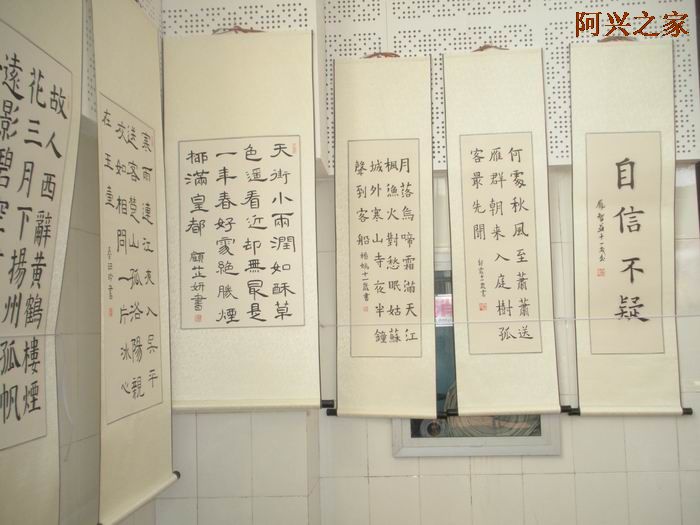 阿兴之家
自信不疑
何處秋風至蕭蕭送
雁群朝來入庭樹孤
客最先聞
月落烏啼霜滿天江
楓漁火對愁眠姑蘇
城外寒山寺夜半鐘
聲到客船 十一歲書
天街小雨潤如酥草
色遥看近却無最是
一年春好處絕勝煙
柳滿皇都 顧芷妍書
寒雨連江夜入吳平
送客楚山孤洛陽親
友如相問一片冰心
在玉壺
故人西辭黃鶴樓煙
花三月下揚州孤帆
遠影碧空